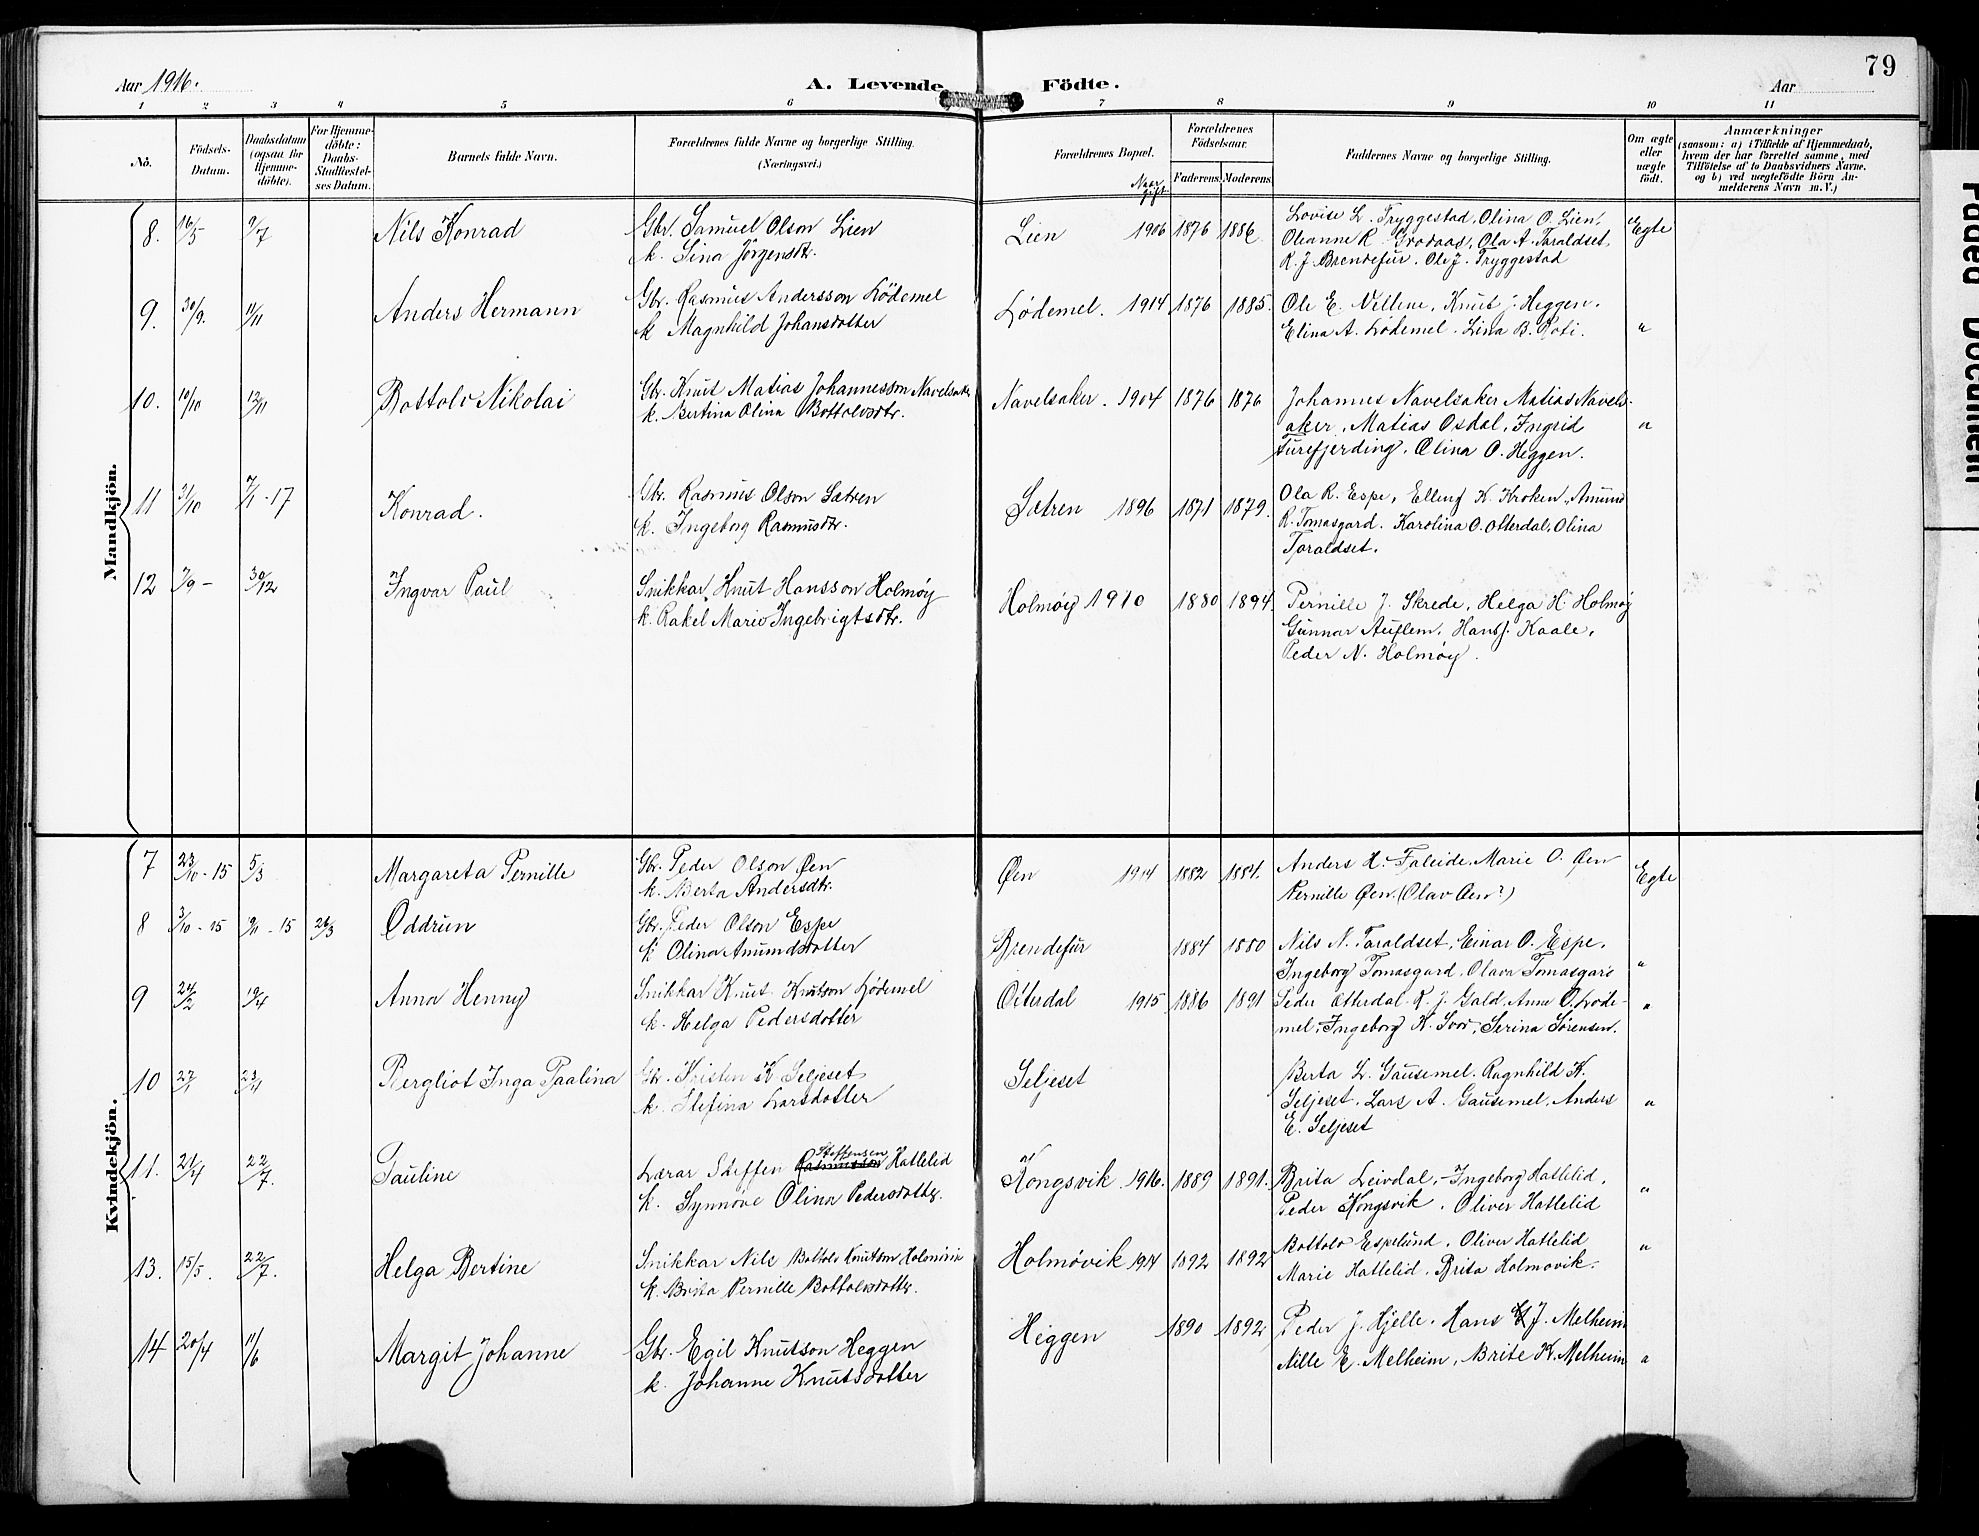 79
Aar 1916. A. Levende Födte. Aar
1 2 3 4 5 6 7 8 9 10 11
No. Födsels-Datum. Daabsdatum (ogsaa for Hjemme-döbte). For Hjemme-döbte: Daabs-Stadfæstelses Datum. Barnets fulde Navn. Forældrenes fulde Navne og borgerlige Stilling. (Næringsvei.) Forældrenes Bopæl. Naar gift. Forældrenes Födselsaar. Faderens Moderens Faddernes Navne og borgerlige Stilling. Om ægte eller uægte födt. Anmærkninger (saasom: a) i Tilfælde af Hjemmedaab, hvem der har forrettet samme, med Tilföielse af to Daabsvidners Navne, og b) ved uægtefödte Börn Anmelderens Navn m. V.)
Mandkjön.
8. 16/5 9/7 Nils Konrad Gbr. Samuel Olson Lien Lien 1906 1876 1886. Lovise L. Tryggestad, Olina O. Lien, Egte
k. Sina Jørgensdtr. Oleanne R. Grodaas, Ola A. Taraldset,
R. J. Brendefur. Ole J. Tryggestad
9. 30/9. 11/11 Anders Hermann Gbr. Rasmus Andersson Lødemel Lødemel. 1914 1876 1885. Ole E. Villene, Knut J. Heggen.
k Magnhild Johansdotter Elina A. Lødemel. Lina B. Roti. "
10. 10/10 12/11 Bottolv Nikolai Gbr. Knut Matias Johannesson Navelsaker Navelsaker. 1904 1876 1876 Johannes Navelsaker Matias Navels-
k. Bertina Olina Bottolvsdtr. aker, Matias Osdal, Ingrid "
Furefjerding, Olina O. Heggen.
11 31/10 7/1 - 17 Konrad. Gbr. Rasmus Olson Sætren Sætren 1896 1871 1879. Ola R. Espe, Elling K. Kroken, Amund
k. Ingeborg Rasmusdtr. R. Tomasgard. Karolina O. Otterdal, Olina
Taraldset.
12 7/9 - 30/12 Ingvar Paul Snikkar Knut Hansson Holmøy Holmøy 1910 1880 1894. Pernille J. Skrede, Helga H. Holmøy
k. Rakel Marie Ingebrigtsdtr. Gunnar Auflem, Hans J. Kaale,
Peder N. Holmøy.
Kvindekjön.
7 23/10 - 15 5/3 Margareta Pernille Gbr. Peder Olson Øen Øen 1914 1882 1884. Anders H. Faleide, Marie O. Øen Egte
k. Berta Andersdtr. Pernille Øen. (Olav Øen?)
8 3/10 - 15 9/11 - 15 26/3 Oddrun Gbr. Peder Olson Espe Brendefur 1884 1880 Nils N. Taraldset, Einar O. Espe.
k Olina Amundsdotter Ingeborg Tomasgard, Olava Tomasgard "
9 24/2 19/4 Anna Henny Snikkar Knut Knutson Lødemel Otterdal 1915 1886 1891 Peder Otterdal. R. J. Gald, Anne O. Løde- "
k. Helga Pedersdotter mel, Ingeborg K. Svor, Serina Sørensen.
10 27/1 23/4 Bergliot Inga Paalina Gbr. Kristen K Seljeset Seljeset Berta L. Gausemel. Ragnhild K.
k. Stefina Larsdotter Seljeset. Lars A. Gausemel, Anders "
E. Seljeset
11. 21/4 22/7. Pauline Lærar Steffen Rasmusson Steffensen Hatlelid Kongsvik 1916. 1889 1891. Brita Leivdal, Ingeborg Hatlelid,
k. Synnøve Olina Pedersdotter. Peder Kongsvik. Oliver Hatlelid "
13. 15/5. 22/7. Helga Bertine Snikkar Nils Bottolv Knutson Holmøvik Holmøvik 1914 1892 1892 Bottolv Espelund. Oliver Hatlelid "
k. Brita Pernille Bottolvsdotter. Marie Hatlelid. Brita Holmøvik.
14 20/4 11/6 Margit Johanne Gbr. Egil Knutson Heggen Heggen 1890 1892 Peder J. Hjelle. Hans J. Melheim
k. Johanne Knutsdotter Nille E. Melheim, Brite K. Melheim "
Faded Document